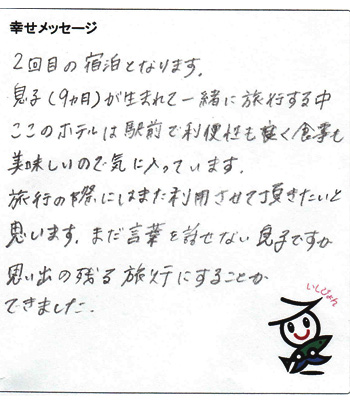 幸せメッセージ
2回目の宿泊となります。
息子(9ヵ月)が生まれて一緒に旅行する中
ここのホテルは駅前で利便性も良く食事も
美味しいので気に入っています。
旅行の際にはまた利用させて頂きたいと
思います。まだ言葉を話せない息子ですが
思い出の残る旅行にすることが
できました。
いしぴょん